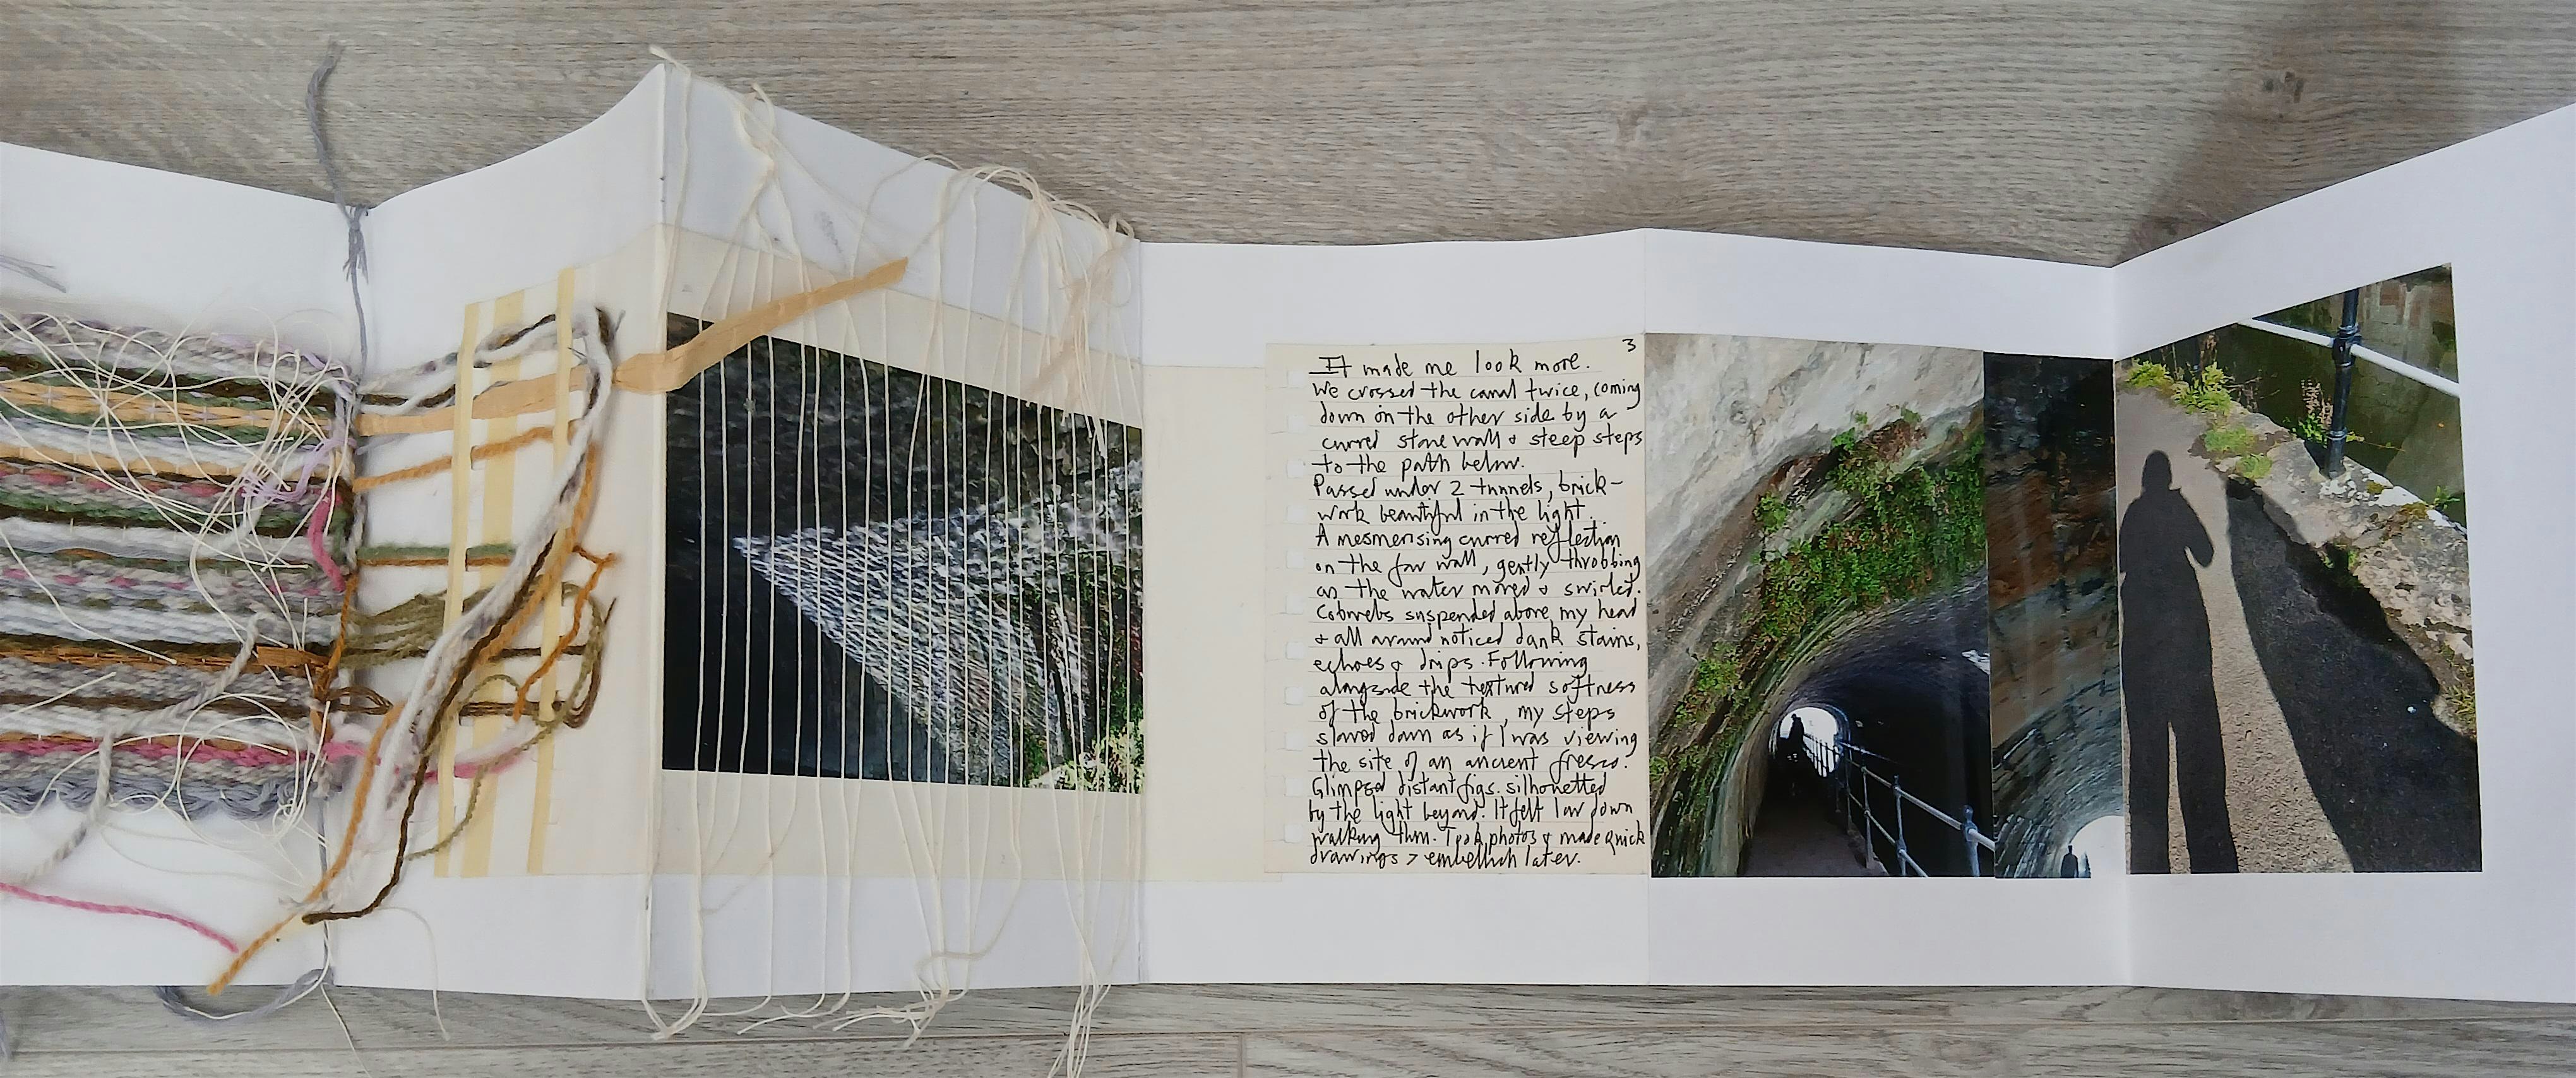 3
It made me look more.
We crossed the canal twice, coming
down on the other side by a
curved stone wall & steep steps
to the path below.
Passed under 2 tunnels, brick-
work beautiful in the light.
A mesmerising curved reflection
on the far wall, gently throbbing
as the water moved & swirled.
Cobwebs suspended above my head
& all around noticed dank stains,
echoes & drips. Following
alongside the textured softness
of the brickwork, my steps
slowed down as if I was viewing
the site of an ancient fresco.
Glimpsed distant figs. silhouetted
by the light beyond. It felt low down
walking thru. Took photos & made quick
drawings > embellish later.